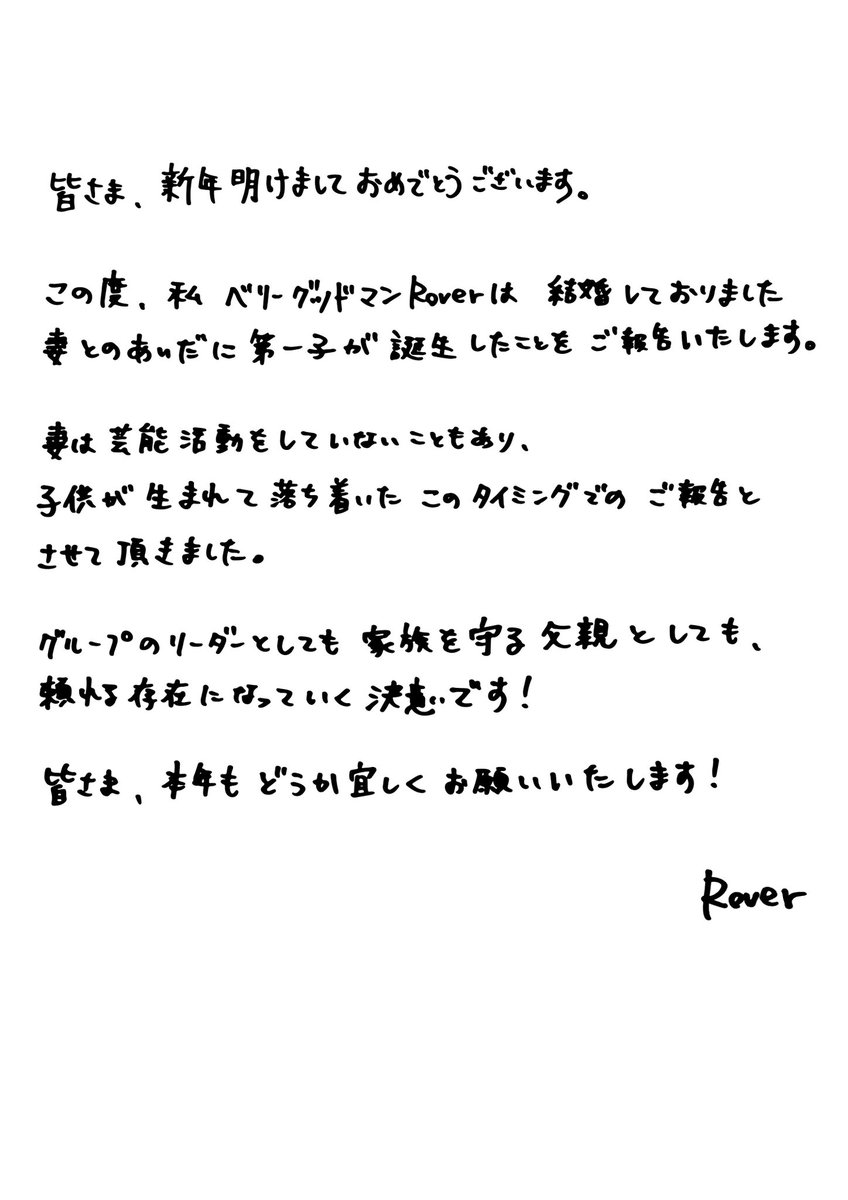 皆さま、新年明けましておめでとうございます。
この度、私 ベリーグッドマンRoverは 結婚しておりました
妻とのあいだに第一子が誕生したことをご報告いたします。
妻は芸能活動をしていないこともあり、
子供が生まれて落ち着いたこのタイミングでのご報告と
させて頂きました。
グループのリーダーとしても家族を守る父親としても、
頼れる存在になっていく決意です!
皆さま、本年もどうか宜しくお願いいたします!
Rover